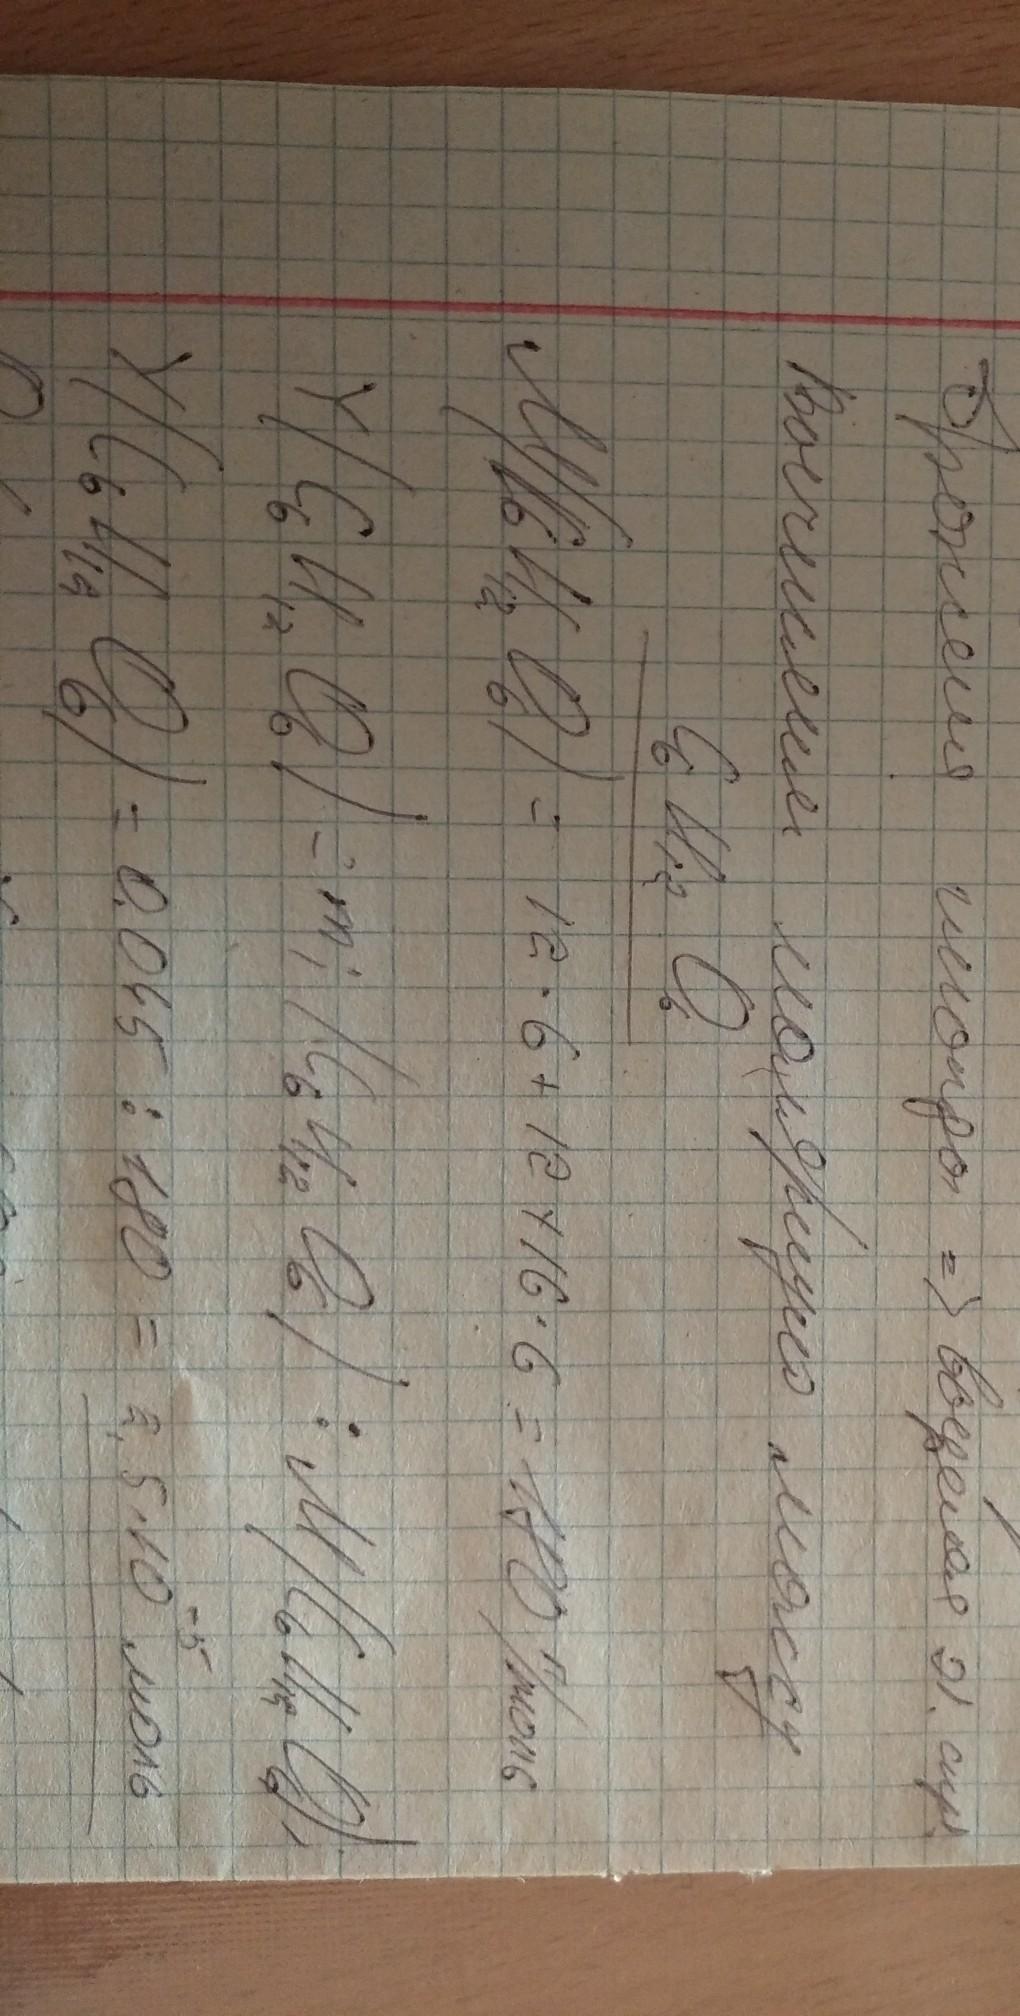 Брожения микро => времея эт. спир.
Вычислим молярную массу
C₆H₁₂O₆
M(C₆H₁₂O₆) = 12·6+12+16·6 = 180 г/моль
Y(C₆H₁₂O₆) = m(C₆H₁₂O₆) : M(C₆H₁₂O₆)
Y(C₆H₁₂O₆) = 0.045 : 180 = 2,5·10⁻⁵ моль